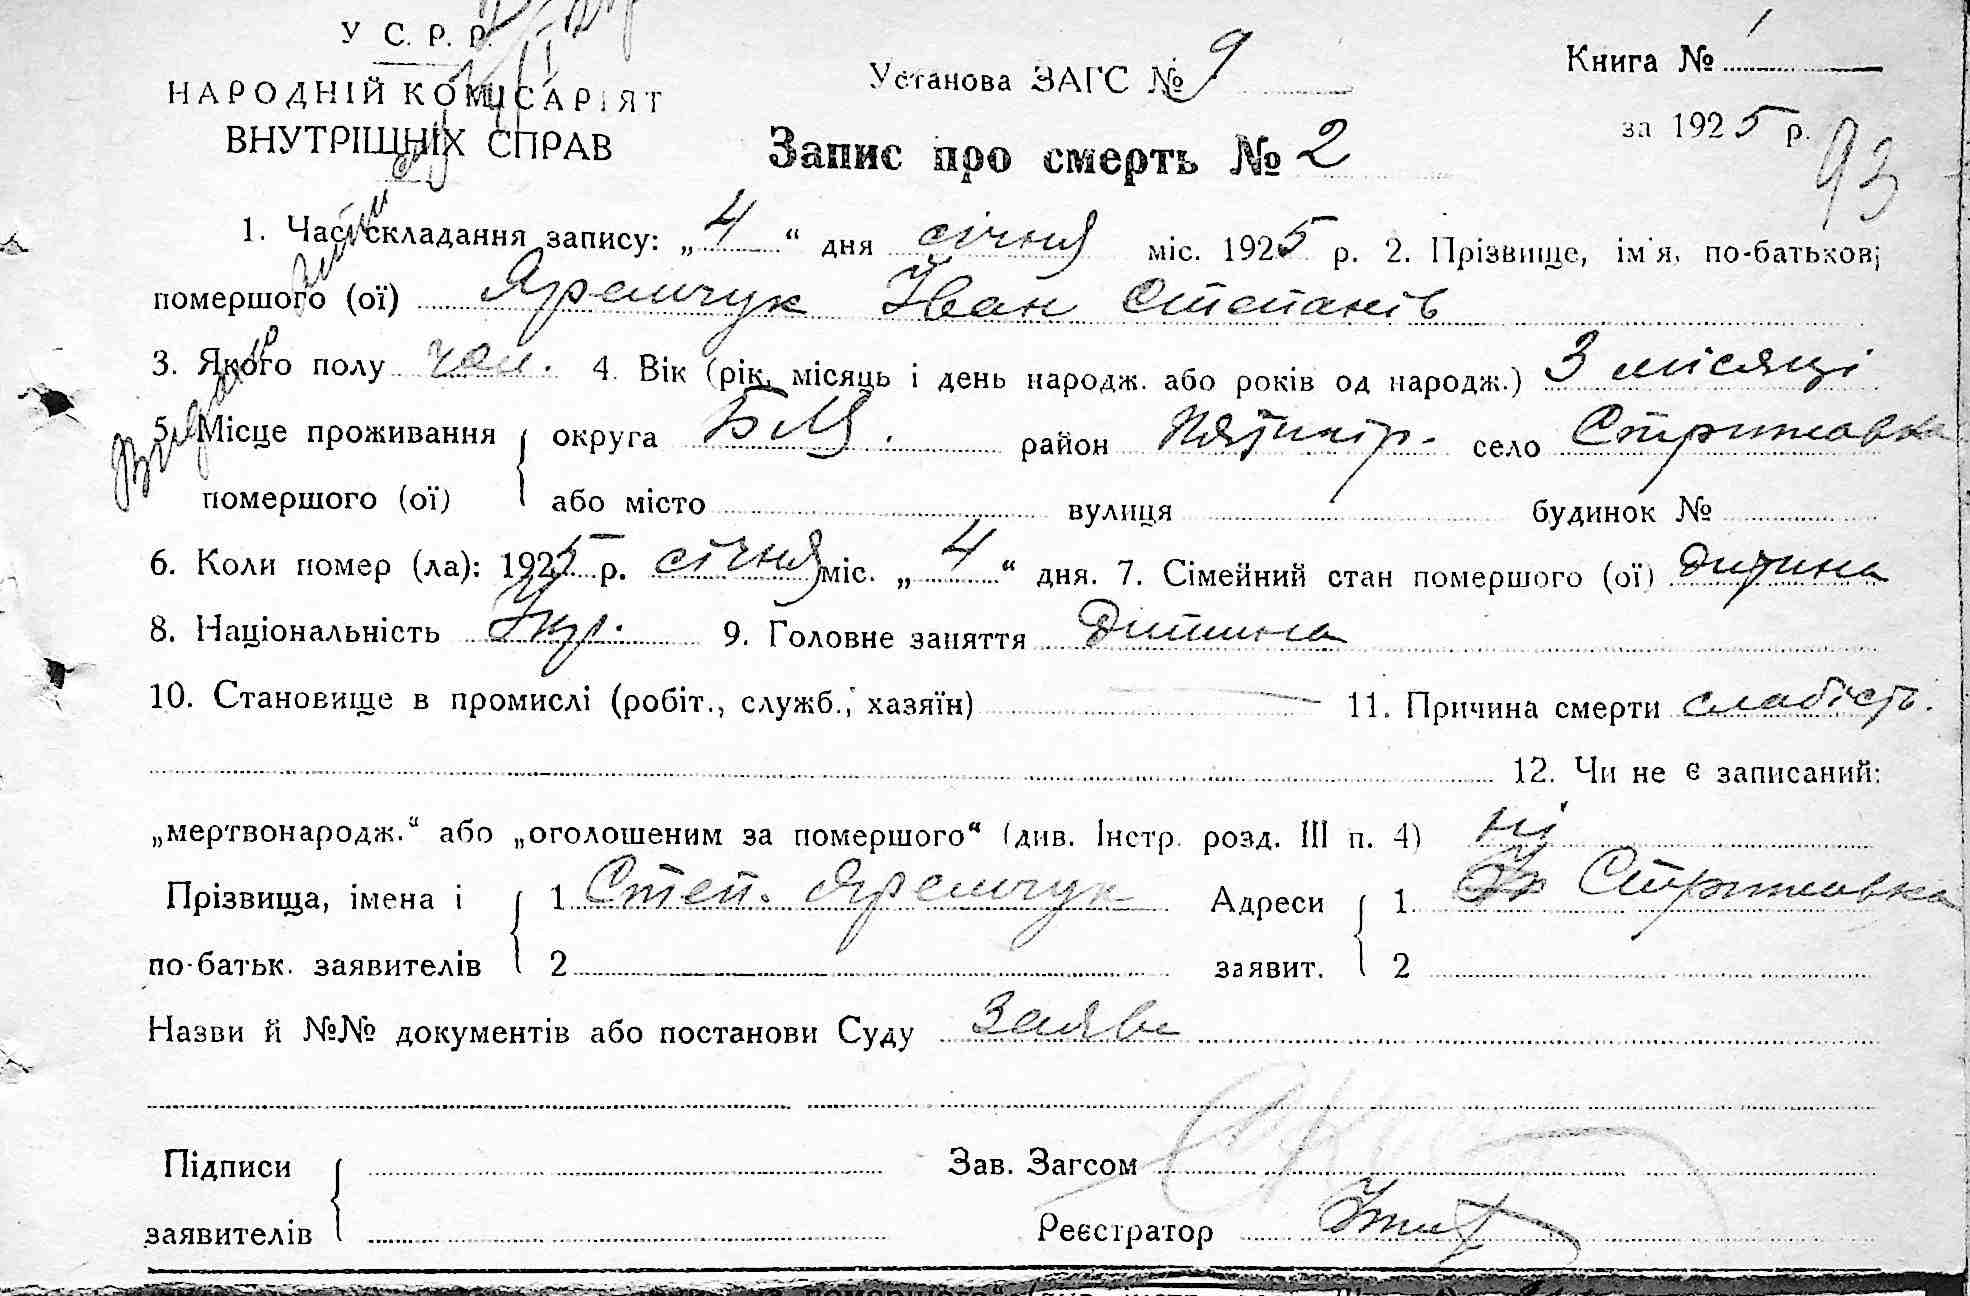 У С. Р. Р.
НАРОДНІЙ КОМІСАРІЯТ
ВНУТРІШНІХ СПРАВ
Установа ЗАГС № 9
Книга № 1
за 1925 р.
93
Запис про смерть № 2
1. Час складання запису: „4“ дня січня міс. 1925 р. 2. Прізвище, ім'я, по-батькові
помершого (ої) Яремчук Іван Степанів
3. Якого полу чол. 4. Вік (рік, місяць і день народж. або років од народж.) 3 місяці
5. Місце проживання { округа район село Стрижавка
помершого (ої) або місто вулиця будинок №
6. Коли помер (ла): 1925 р. січня міс. „4“ дня. 7. Сімейний стан помершого (ої) дитина
8. Національність Укр. 9. Головне заняття Дитина
10. Становище в промислі (робіт., служб., хазяїн) — 11. Причина смерти слабість.
12. Чи не є записаний:
„мертвонародж.“ або „оголошеним за помершого“ (див. Інстр. розд. III п. 4) ні
Прізвища, імена і { 1 Степ. Яремчук Адреси { 1. Стрижавка
по-батьк. заявителів 2 заявит. 2
Назви й №№ документів або постанови Суду Заява
Підписи { Зав. Загсом
заявителів Реєстратор